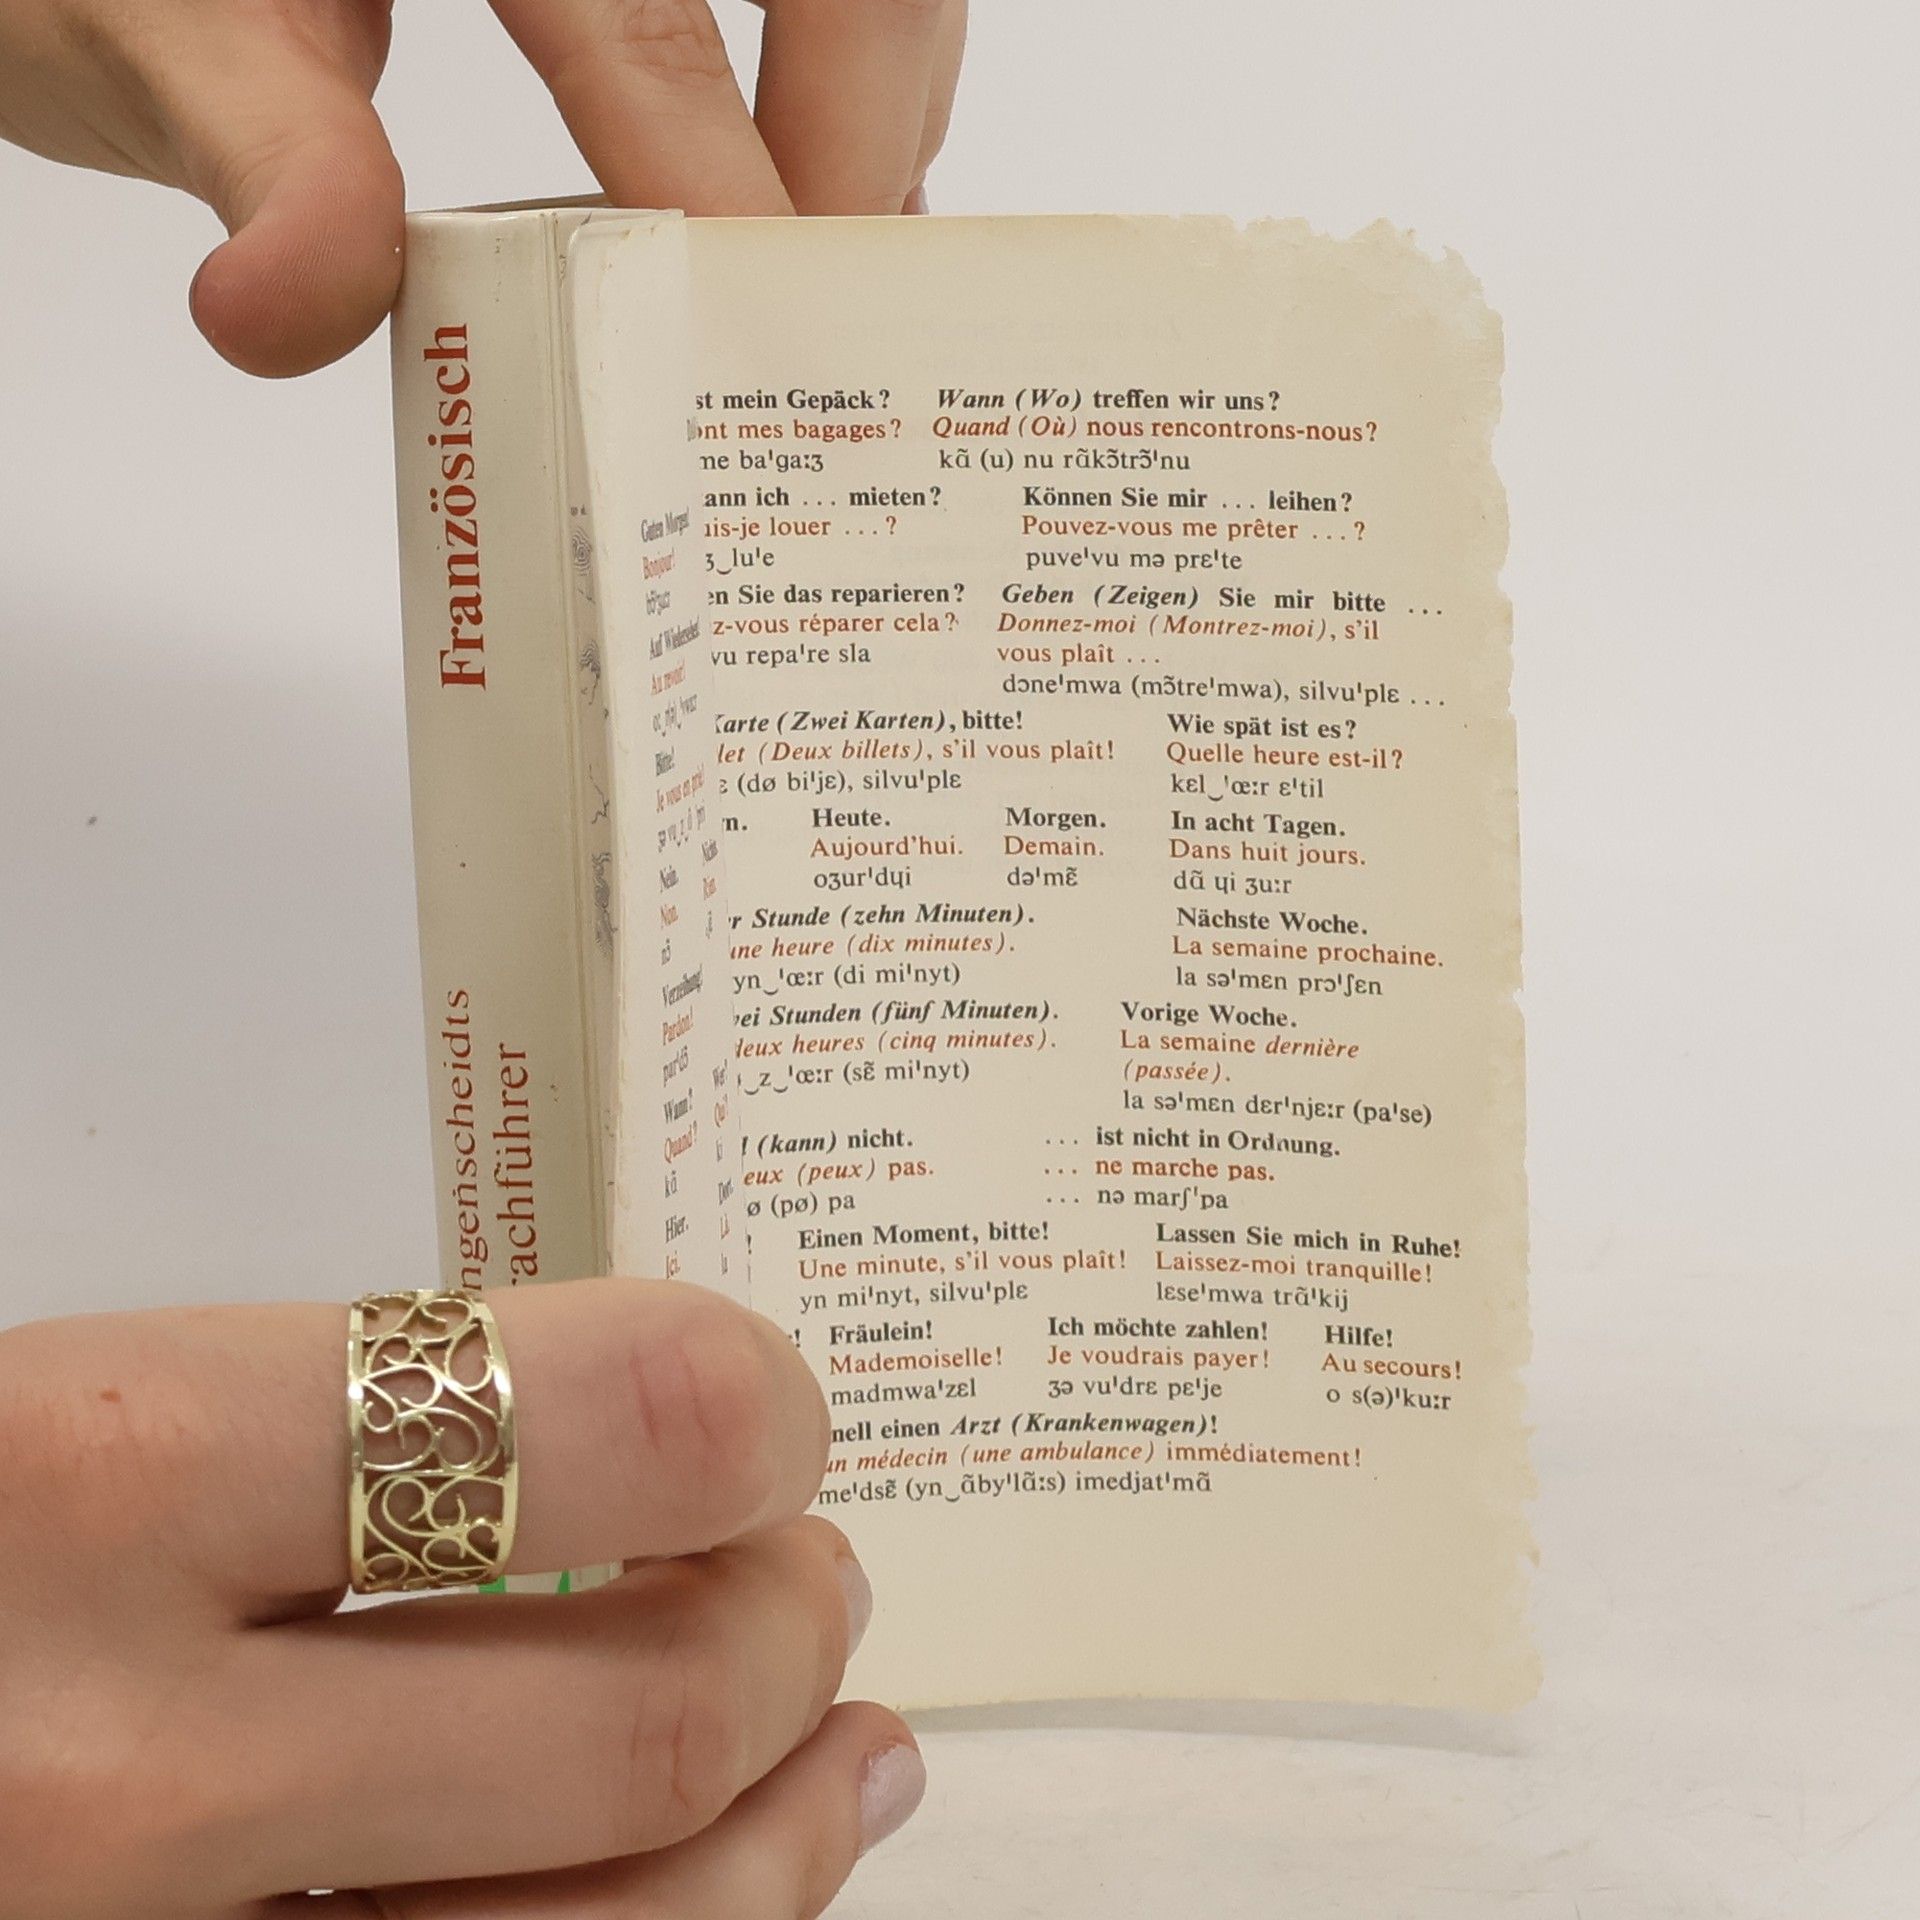 Französisch
ngenscheidts
achführer
Guten Morgen!
Bonjour!
Auf Wiedersehen!
Au revoir!
Bitte!
Je vous en prie!
Nein.
Non.
nɔ̃
Verzeihung!
Pardon!
par'dɔ̃
Wann?
Quand?
kɑ̃
Hier.
Ici.
st mein Gepäck? Wann (Wo) treffen wir uns?
ont mes bagages? Quand (Où) nous rencontrons-nous?
me baˈgaːʒ kɑ̃ (u) nu rɑ̃kɔ̃trɔ̃ˈnu
ann ich ... mieten? Können Sie mir ... leihen?
uis-je louer ...? Pouvez-vous me prêter ...?
ʒ‿luˈe puveˈvu mə prɛˈte
en Sie das reparieren? Geben (Zeigen) Sie mir bitte ...
z-vous réparer cela? Donnez-moi (Montrez-moi), s'il
vu repaˈre sla vous plaît ...
dɔneˈmwa (mɔ̃treˈmwa), silvuˈplɛ ...
Karte (Zwei Karten), bitte! Wie spät ist es?
let (Deux billets), s'il vous plaît! Quelle heure est-il?
ɛ (dø biˈjɛ), silvuˈplɛ kɛl‿ˈœːr ɛˈtil
rn. Heute. Morgen. In acht Tagen.
Aujourd'hui. Demain. Dans huit jours.
oʒurˈdɥi dəˈmɛ̃ dɑ̃ ɥi ʒuːr
r Stunde (zehn Minuten). Nächste Woche.
une heure (dix minutes). La semaine prochaine.
yn‿ˈœːr (di miˈnyt) la səˈmɛn prɔˈʃɛn
ei Stunden (fünf Minuten). Vorige Woche.
deux heures (cinq minutes). La semaine dernière
‿z‿ˈœːr (sɛ̃ miˈnyt) (passée).
la səˈmɛn dɛrˈnjɛːr (paˈse)
(kann) nicht. ... ist nicht in Ordnung.
eux (peux) pas. ... ne marche pas.
ø (pø) pa ... nə marʃˈpa
! Einen Moment, bitte! Lassen Sie mich in Ruhe!
Une minute, s'il vous plaît! Laissez-moi tranquille!
yn miˈnyt, silvuˈplɛ lɛseˈmwa trɑ̃ˈkij
! Fräulein! Ich möchte zahlen! Hilfe!
Mademoiselle! Je voudrais payer! Au secours!
madmwaˈzɛl ʒə vuˈdrɛ pɛˈje o s(ə)ˈkuːr
nell einen Arzt (Krankenwagen)!
un médecin (une ambulance) immédiatement!
meˈdsɛ̃ (yn‿ɑ̃byˈlɑ̃ːs) imedjatˈmɑ̃